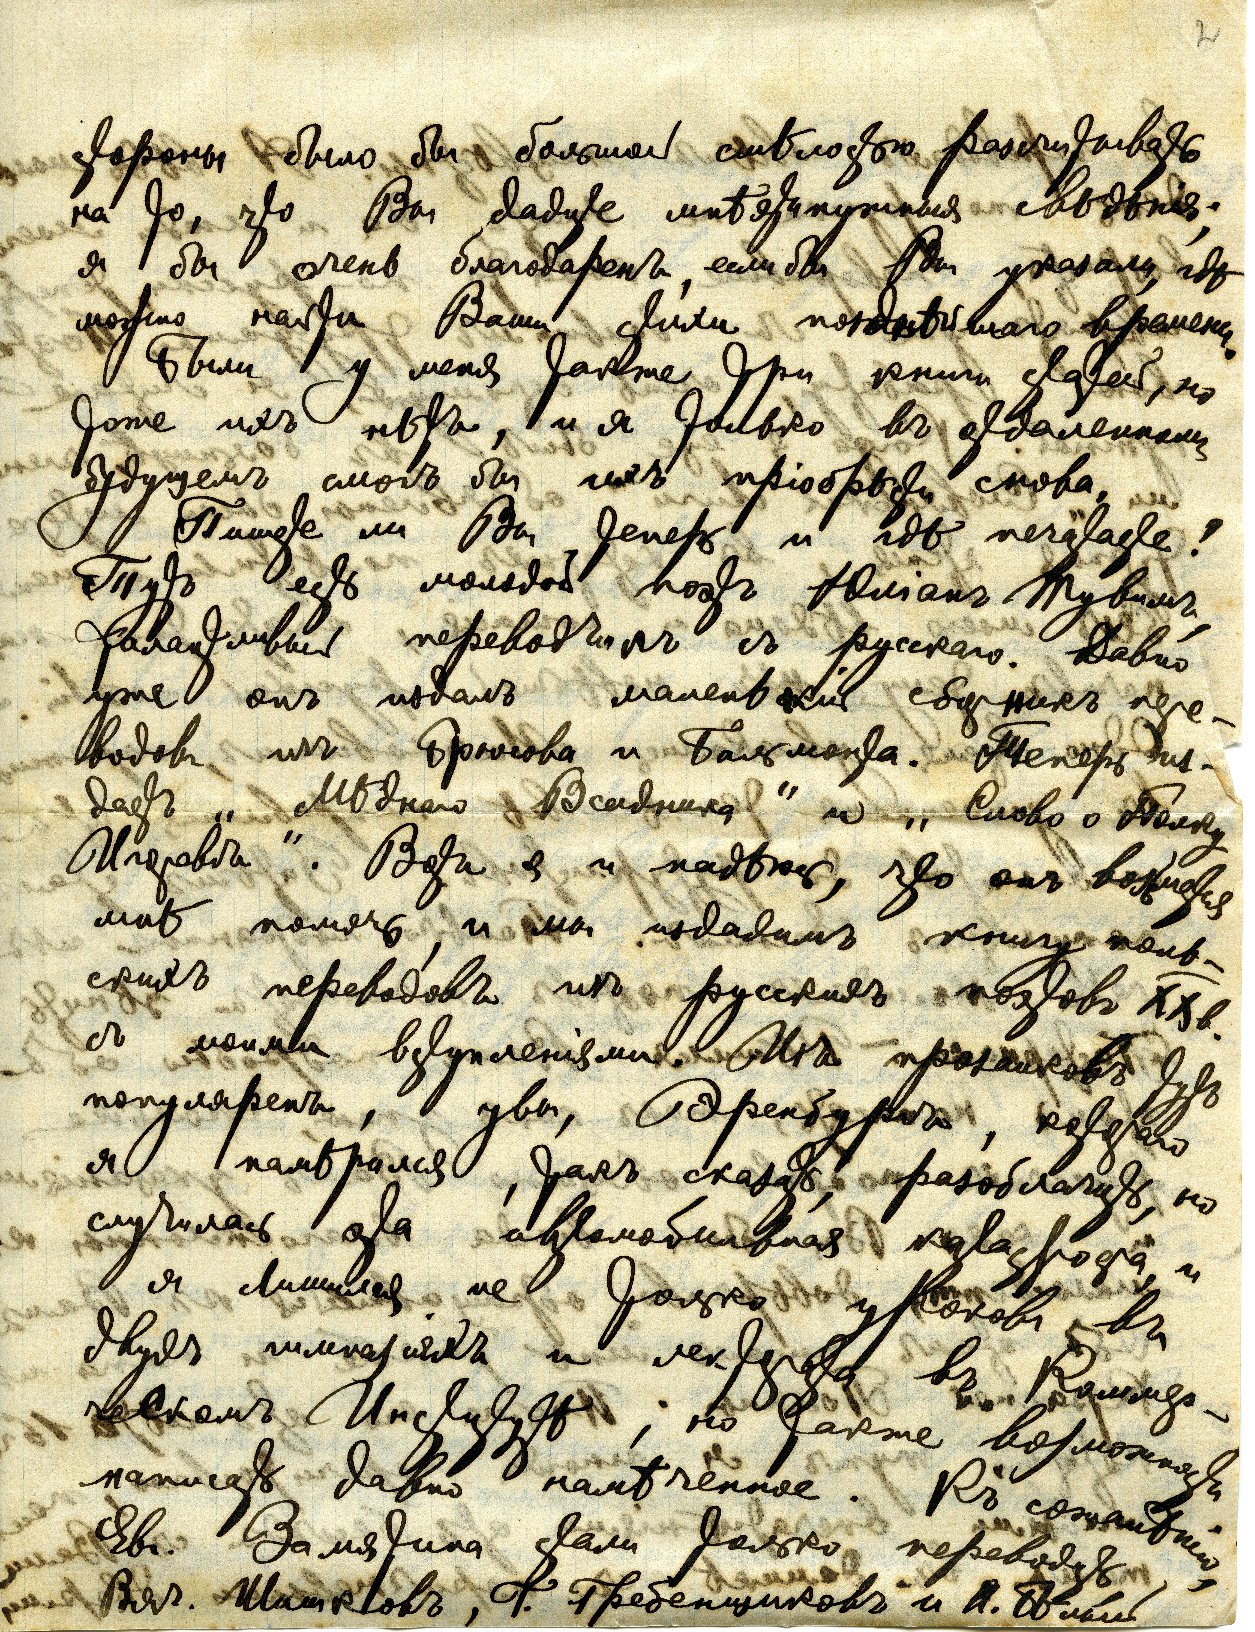 2
стороны было бы большой смѣлостью разсчитывать
на то, что Вы дадите мнѣ эти нужныя свѣдѣнія;
я бы очень благодаренъ, если бы Вы указали, гдѣ
можно найти Ваши стихи позднѣйшаго времени.
Были у меня также три книги статей, но
тоже ихъ нѣтъ, и я только въ отдаленномъ
будущемъ смогъ бы ихъ пріобрѣсти снова.
Пишете ли Вы теперь и гдѣ печатаете?
Тутъ есть молодой поэтъ Юліанъ Тувимъ,
талантливый переводчикъ съ русскаго. Давно
уже онъ издалъ маленькій сборникъ пере-
водовъ изъ Брюсова и Бальмонта. Теперь из-
дастъ „Мѣднаго Всадника" и „Слово о Полку
Игоревѣ". Вотъ я и надѣюсь, что онъ возьмется
мнѣ помочь, и мы издадимъ книгу поль-
скихъ переводовъ изъ русскихъ поэтовъ XX в.
съ моими вступленіями. Изъ прозаиковъ тутъ
популяренъ, увы, Эренбургъ, котораго
я намѣрился, такъ сказать, разоблачить, но
случилась эта автомобильная катастрофа, и
я лишился не только уроковъ въ
двухъ гимназіяхъ и лектората въ Коммер-
ческомъ Институтѣ, но также возможности
написать давно намѣченное. Къ сожалѣнію,
Евг. Замятина стали только переводить
Вяч. Шишковъ, Г. Гребенщиковъ и А. Бѣлый